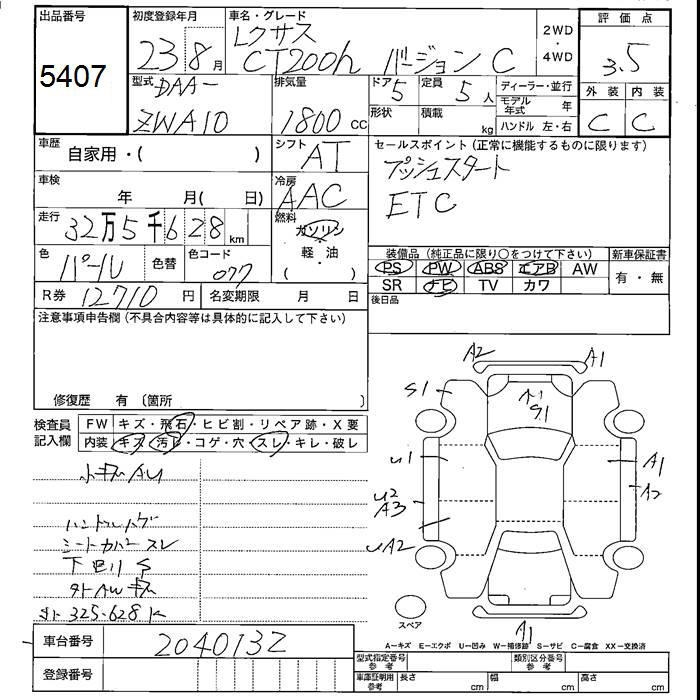 出品番号
5407
初度登録年月
23 8月
車名・グレード
レクサス
CT200h バージョンC
2WD
・
4WD
評価点
3.5
外装 内装
C C
型式
DAA-
ZWA10
排気量
1800 cc
ドア
5
定員
5人
形状
積載
kg
ディーラー・並行
モデル年式 年
ハンドル 左・右
車歴
自家用・( )
シフト
AT
セールスポイント(正常に機能するものに限ります)
プッシュスタート
ETC
車検
年 月( 日)
冷房
AAC
走行
32万5千628 km
燃料
ガソリン
軽・油
( )
色
パール
色替
色コード
077
装備品(純正品に限り○をつけて下さい)
PS PW ABS エアB AW
SR ナビ TV カワ
新車保証書
有・無
R券 12710 円
名変期限 月 日
後日品
注意事項申告欄(不具合内容等は具体的に記入して下さい)
修復歴 有〔箇所 〕
検査員記入欄
FW キズ・飛石・ヒビ割・リペア跡・X要
内装 キズ・汚れ・コゲ・穴・スレ・キレ・破レ
小キズAU
ハンドルハゲ
シートカバースレ
下回りS
外AWキズ
325.628K
A2 A1
S1
S1
U1
A1
U2
A3
A2
UA2
A1
スペア
A=キズ E=エクボ U=凹み W=補修跡 S=サビ C=腐食 XX=交換済
車台番号
2040132
登録番号
型式指定番号
参考
類別区分番号
参考
車庫証明用
参考
長さ cm 幅 cm 高さ cm